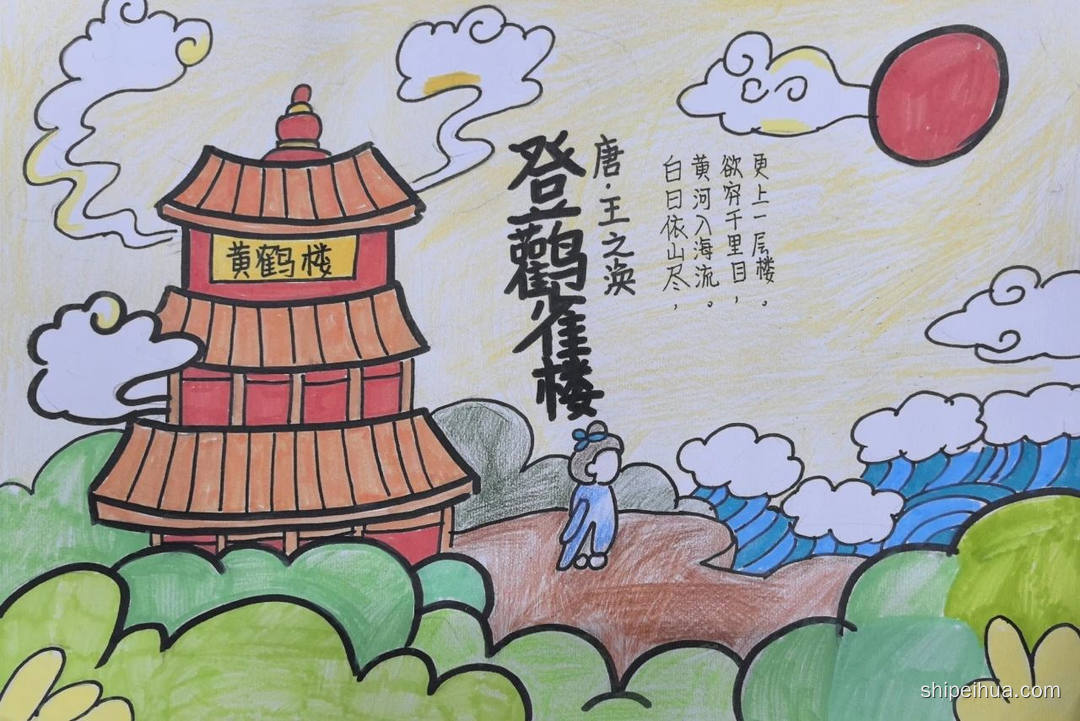 黄鹤楼
登鹳雀楼
唐·王之涣
白日依山尽，
黄河入海流。
欲穷千里目，
更上一层楼。
shipeihua.com